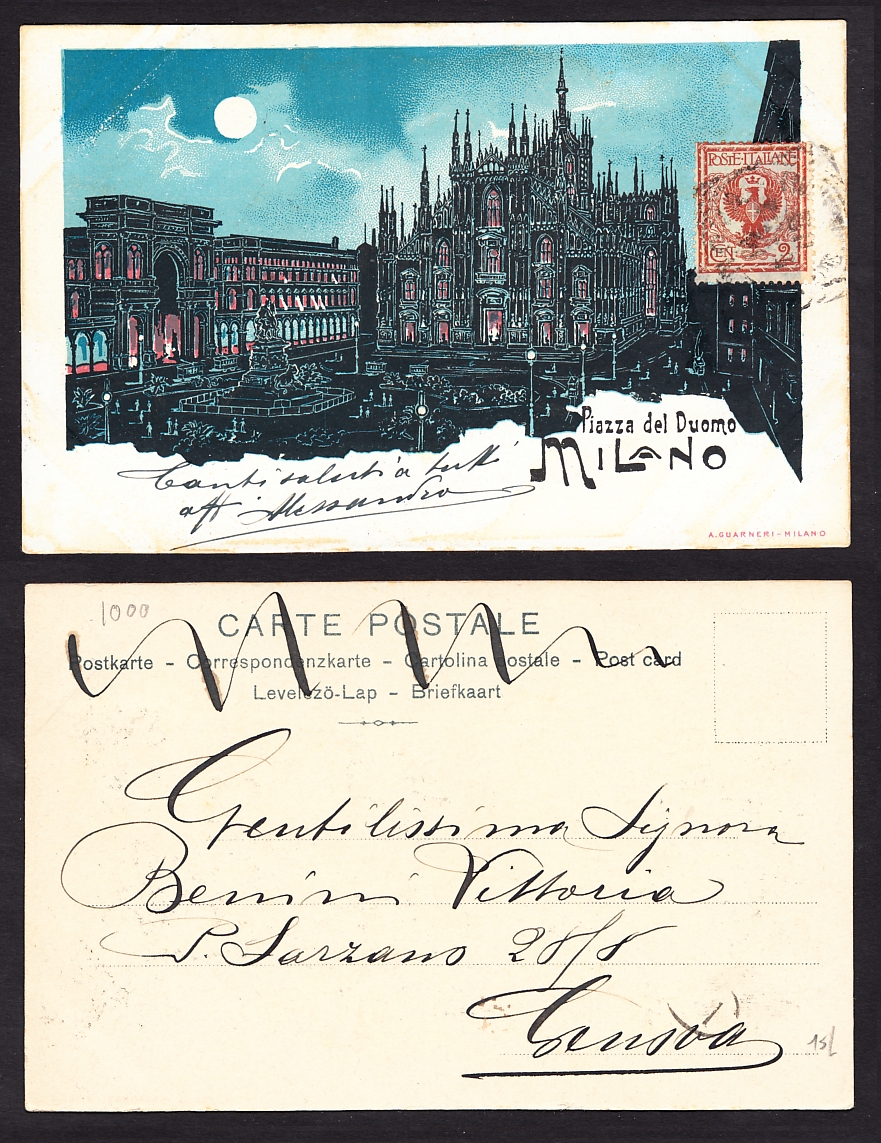 POSTE·ITALIANE
CEN 2
Piazza del Duomo
MILANO
Tanti saluti a tutti
aff Alessandro
A. GUARNERI - MILANO
1000
CARTE POSTALE
Postkarte - Correspondenzkarte - Cartolina postale - Post card
Levelezö-Lap - Briefkaart
Gentilissima Signora
Benini Vittoria
P. Sarzano 28/8
Genova
15/